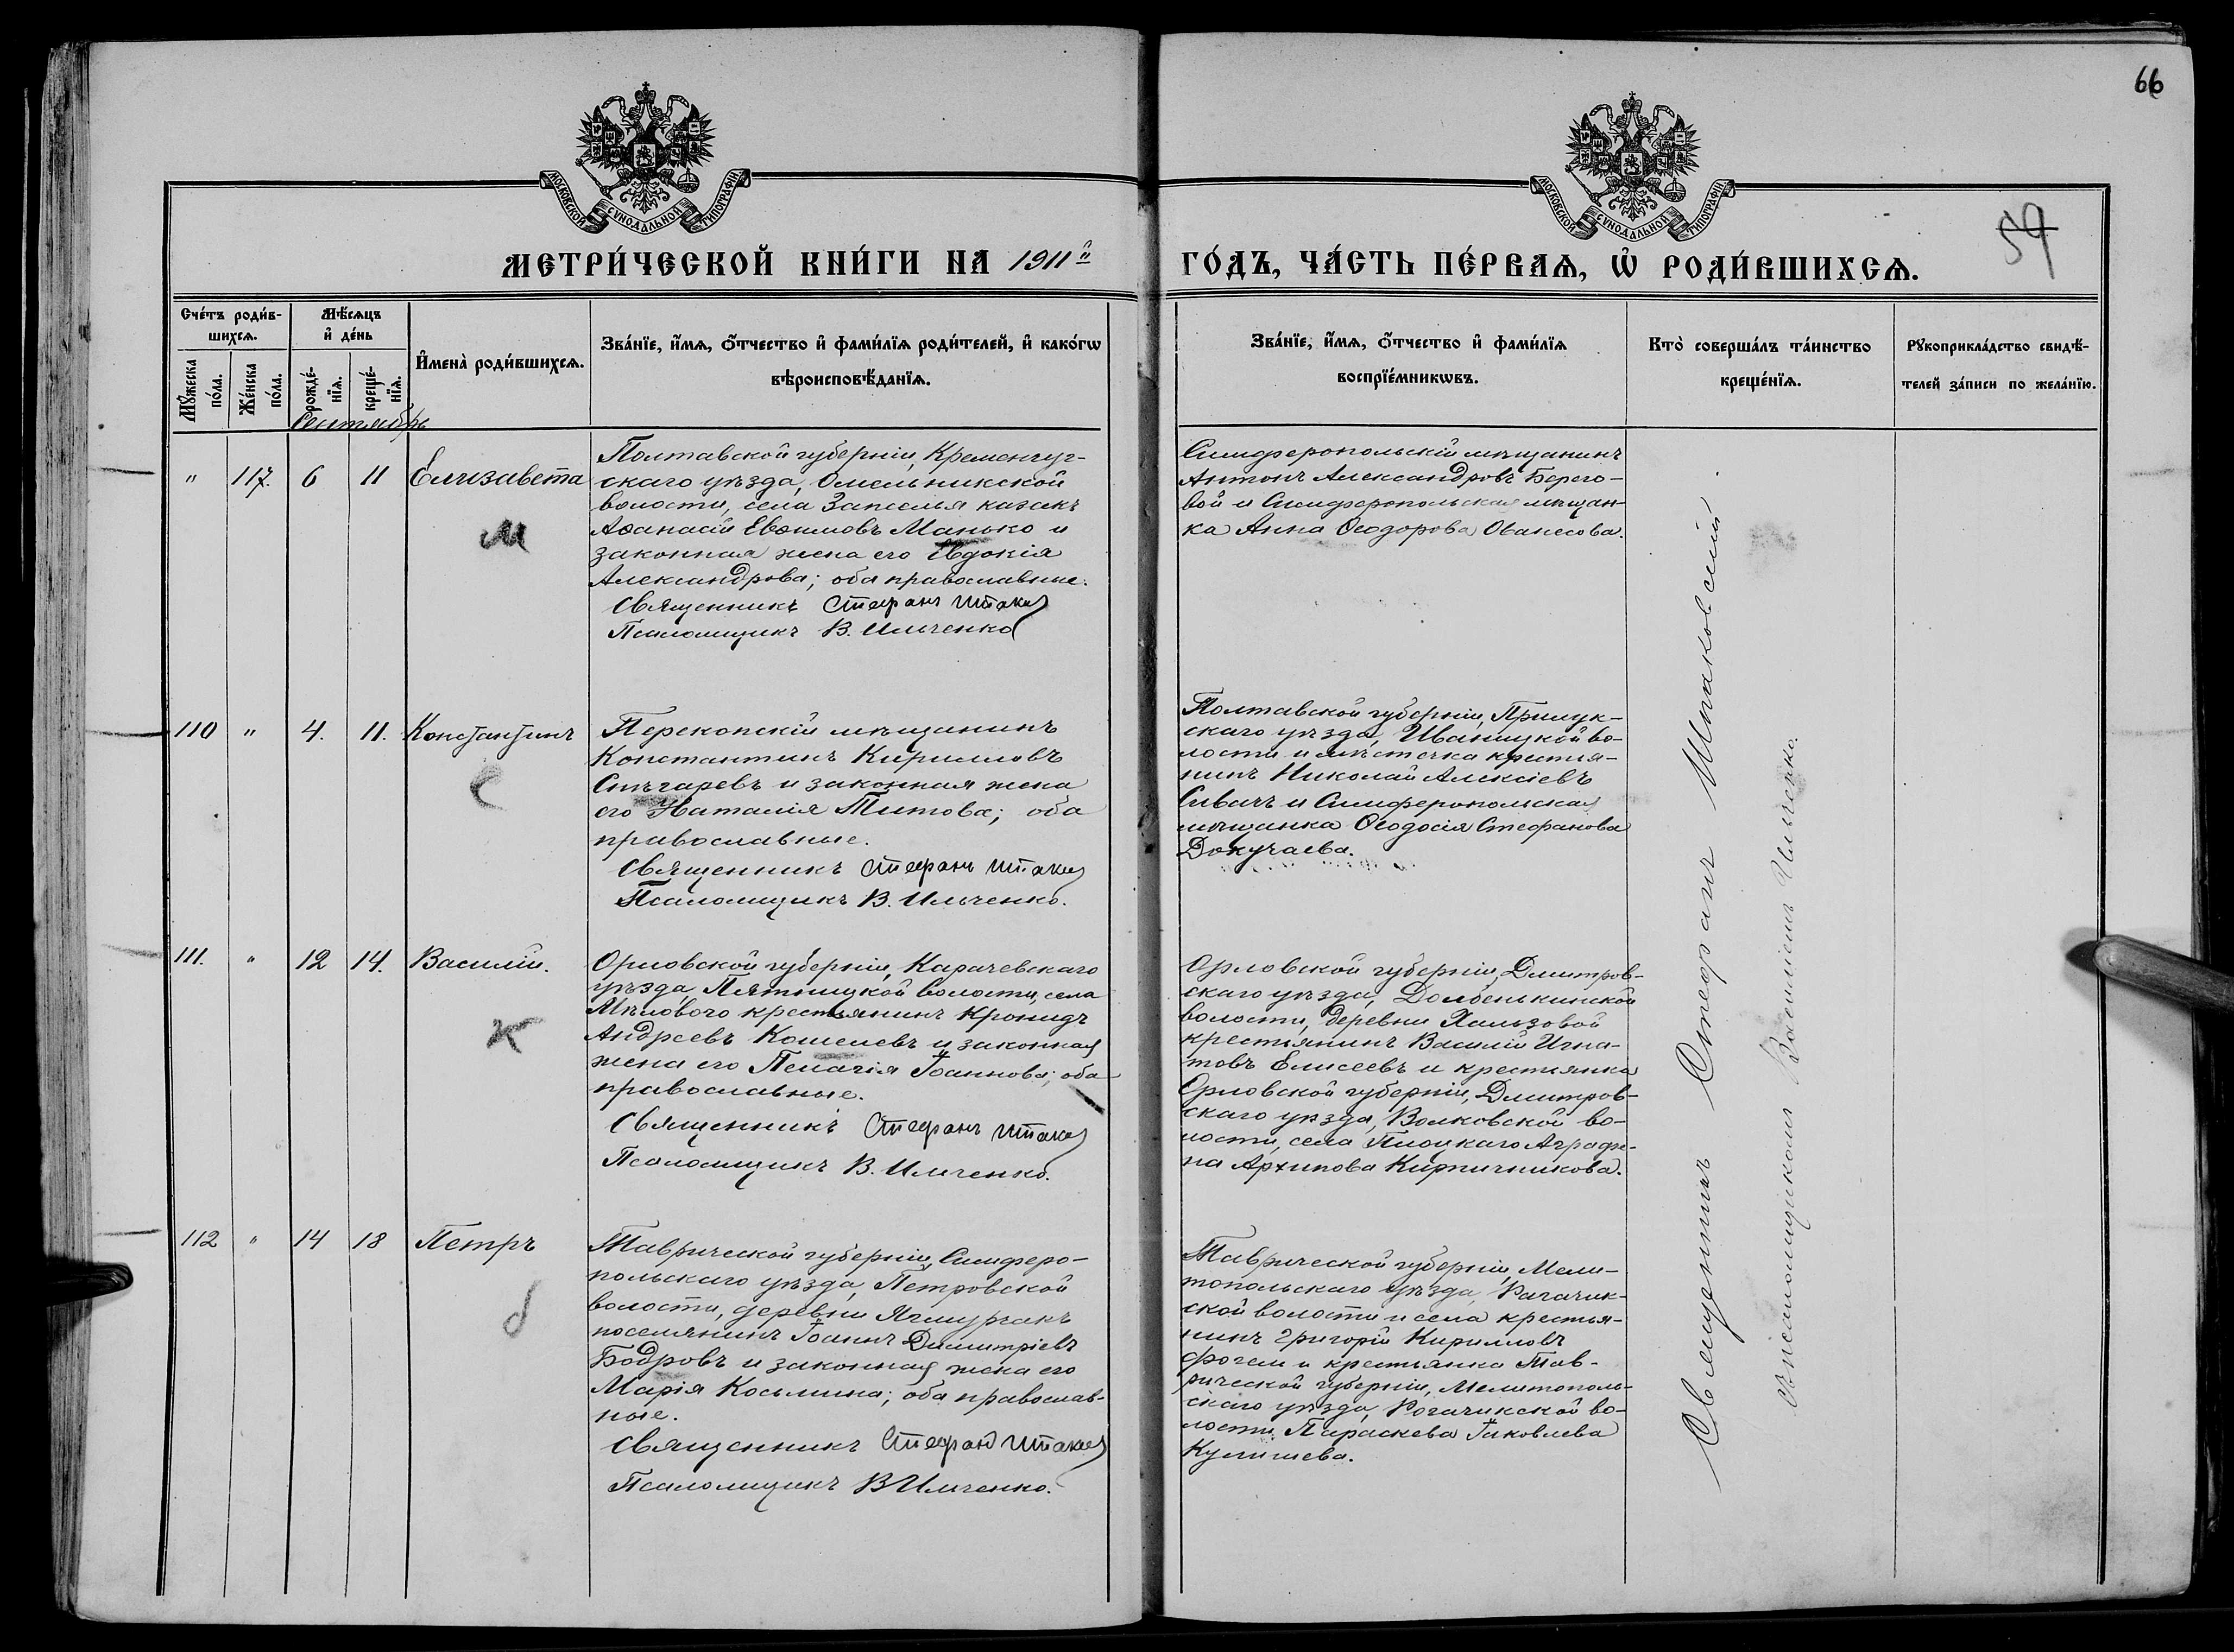 66
59
МОСКОВСКОЙ СУНОДАЛЬНОЙ ТИПОГРАФІИ
МОСКОВСКОЙ СУНОДАЛЬНОЙ ТИПОГРАФІИ
МЕТРИ́ЧЕСКОЙ КНИ́ГИ НА 1911й
ГО́ДЪ, ЧА́СТЬ ПЕ́РВАѦ, Ѡ РОДИ́ВШИХСѦ.
Сче́тъ роди́в-
шихсѧ.
Мꙋ́жеска по́ла.
Же́нска по́ла.
Мѣ́сѧцъ
и҆ де́нь
рожде́-
нїѧ.
креще́-
нїѧ.
И҆мена̀ роди́вшихсѧ.
Зва́нїе, и҆́мѧ, ѻ҆́тчество и҆ фами́лїѧ роди́телей, и҆ како́гѡ
вѣроисповѣ́данїѧ.
Зва́нїе, и҆́мѧ, ѻ҆́тчество и҆ фами́лїѧ
воспрїе́мникѡвъ.
Кто̀ соверша́лъ та́инство
креще́нїѧ.
Рꙋкоприкла́дство свидѣ́-
телей за́писи по жела́нїю.
Сентябрь
" 117. 6 11 Елизавета
м
Полтавской губерніи, Кременчуг-
скаго уѣзда, Омельникской
волости, села Запселья казакъ
Аѳанасій Евѳимовъ Манько и
законная жена его Евдокія
Александрова; оба православные.
Священникъ Стефанъ Шпаков
Псаломщикъ В. Ильченко
Симферопольскій мѣщанинъ
Антонъ Александровъ Берего-
вой и Симферопольская мѣщан-
ка Анна Ѳеодорова Ованесова.
110 " 4. 11. Константинъ
с
Перекопскій мѣщанинъ
Константинъ Кирилловъ
Снѣгаревъ и законная жена
его Наталія Титова; оба
православные.
Священникъ Стефанъ Шпаков
Псаломщикъ В. Ильченко.
Полтавской губерніи, Прилук-
скаго уѣзда, Иваницкой во-
лости и мѣстечка крестья-
нинъ Николай Алексіевъ
Сивачъ и Симферопольская
мѣщанка Ѳеодосія Стефанова
Докучаева.
111. " 12 14. Василій.
к
Орловской губерніи, Карачевскаго
уѣзда, Пятницкой волости, села
Мѣлового крестьянинъ Кронидъ
Андреевъ Кошелевъ и законная
жена его Пелагія Іоаннова; оба
православные.
Священникъ Стефанъ Шпаков
Псаломщикъ В. Ильченко.
Орловской губерніи, Дмитров-
скаго уѣзда, Долбенькинской
волости, деревни Хальзовой
крестьянинъ Василій Игна-
товъ Елисеевъ и крестьянка
Орловской губерніи, Дмитров-
скаго уѣзда, Волковской во-
лости, села Плоцкаго Аграфе-
на Архипова Кирпичникова.
112 " 14 18 Петръ
б
Таврической губерніи, Симферо-
польскаго уѣзда, Петровской
волости, деревни Ягмурчакъ
поселянинъ Іоаннъ Димитріевъ
Бодровъ и законная жена его
Марія Косьмина; оба православ-
ные.
Священникъ Стефанъ Шпаков
Псаломщикъ В Ильченко.
Таврической губерніи, Мели-
топольскаго уѣзда, Рагачик-
ской волости и села крестья-
нинъ Григорій Кирилловъ
и крестьянка Тав-
рической губерніи, Мелитополь-
скаго уѣзда, Рогачикской во-
лости Параскева Іаковлева
Кулишева.
Священникъ Стефанъ Шпаковскій.
съ псаломщикомъ Василіемъ Ильченко.